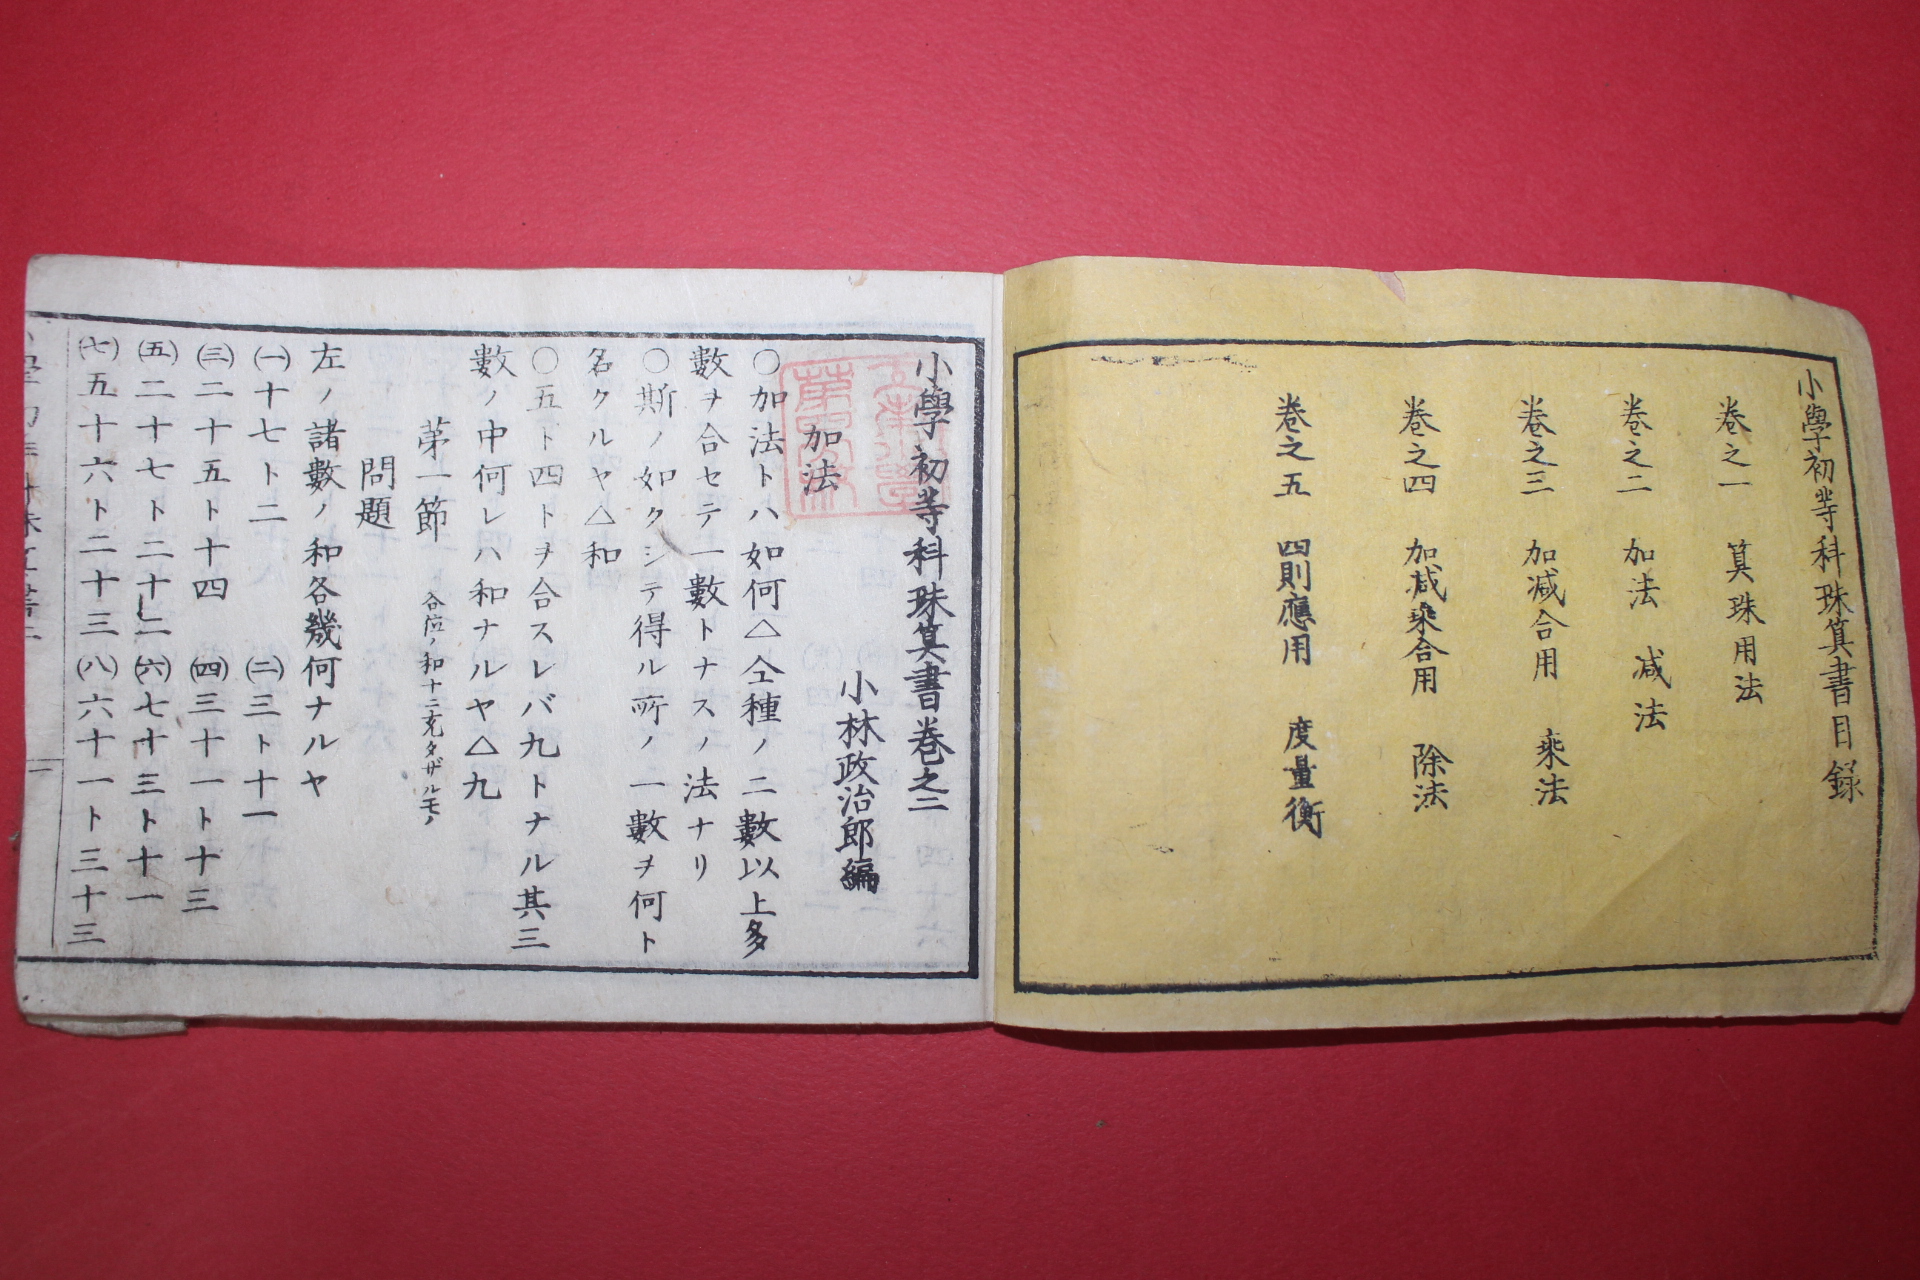 小學初等科珠算書目録
巻之一 算珠用法
巻之二 加法 減法
巻之三 加減合用 乗法
巻之四 加減乗合用 除法
巻之五 四則應用 度量衡
小學初等科珠算書巻之二
小林政治郎編
加法
〇加法トハ如何△仝種ノ二數以上多
數ヲ合セテ一數トナスノ法ナリ
〇斯ノ如クシテ得ル所ノ一數ヲ何ト
名クルヤ△和
〇五ト四トヲ合スレバ九トナル其三
數ノ中何レハ和ナルヤ△九
苐一節 各位ノ和十ニ充タザルモノ
問題
左ノ諸數ノ和各幾何ナルヤ
㈠十七ト二 ㈡三ト十一
㈢二十五ト十四 ㈣三十一ト十三
㈤二十七ト二十二 ㈥七十三ト十一
㈦五十六ト二十三 ㈧六十一ト三十三